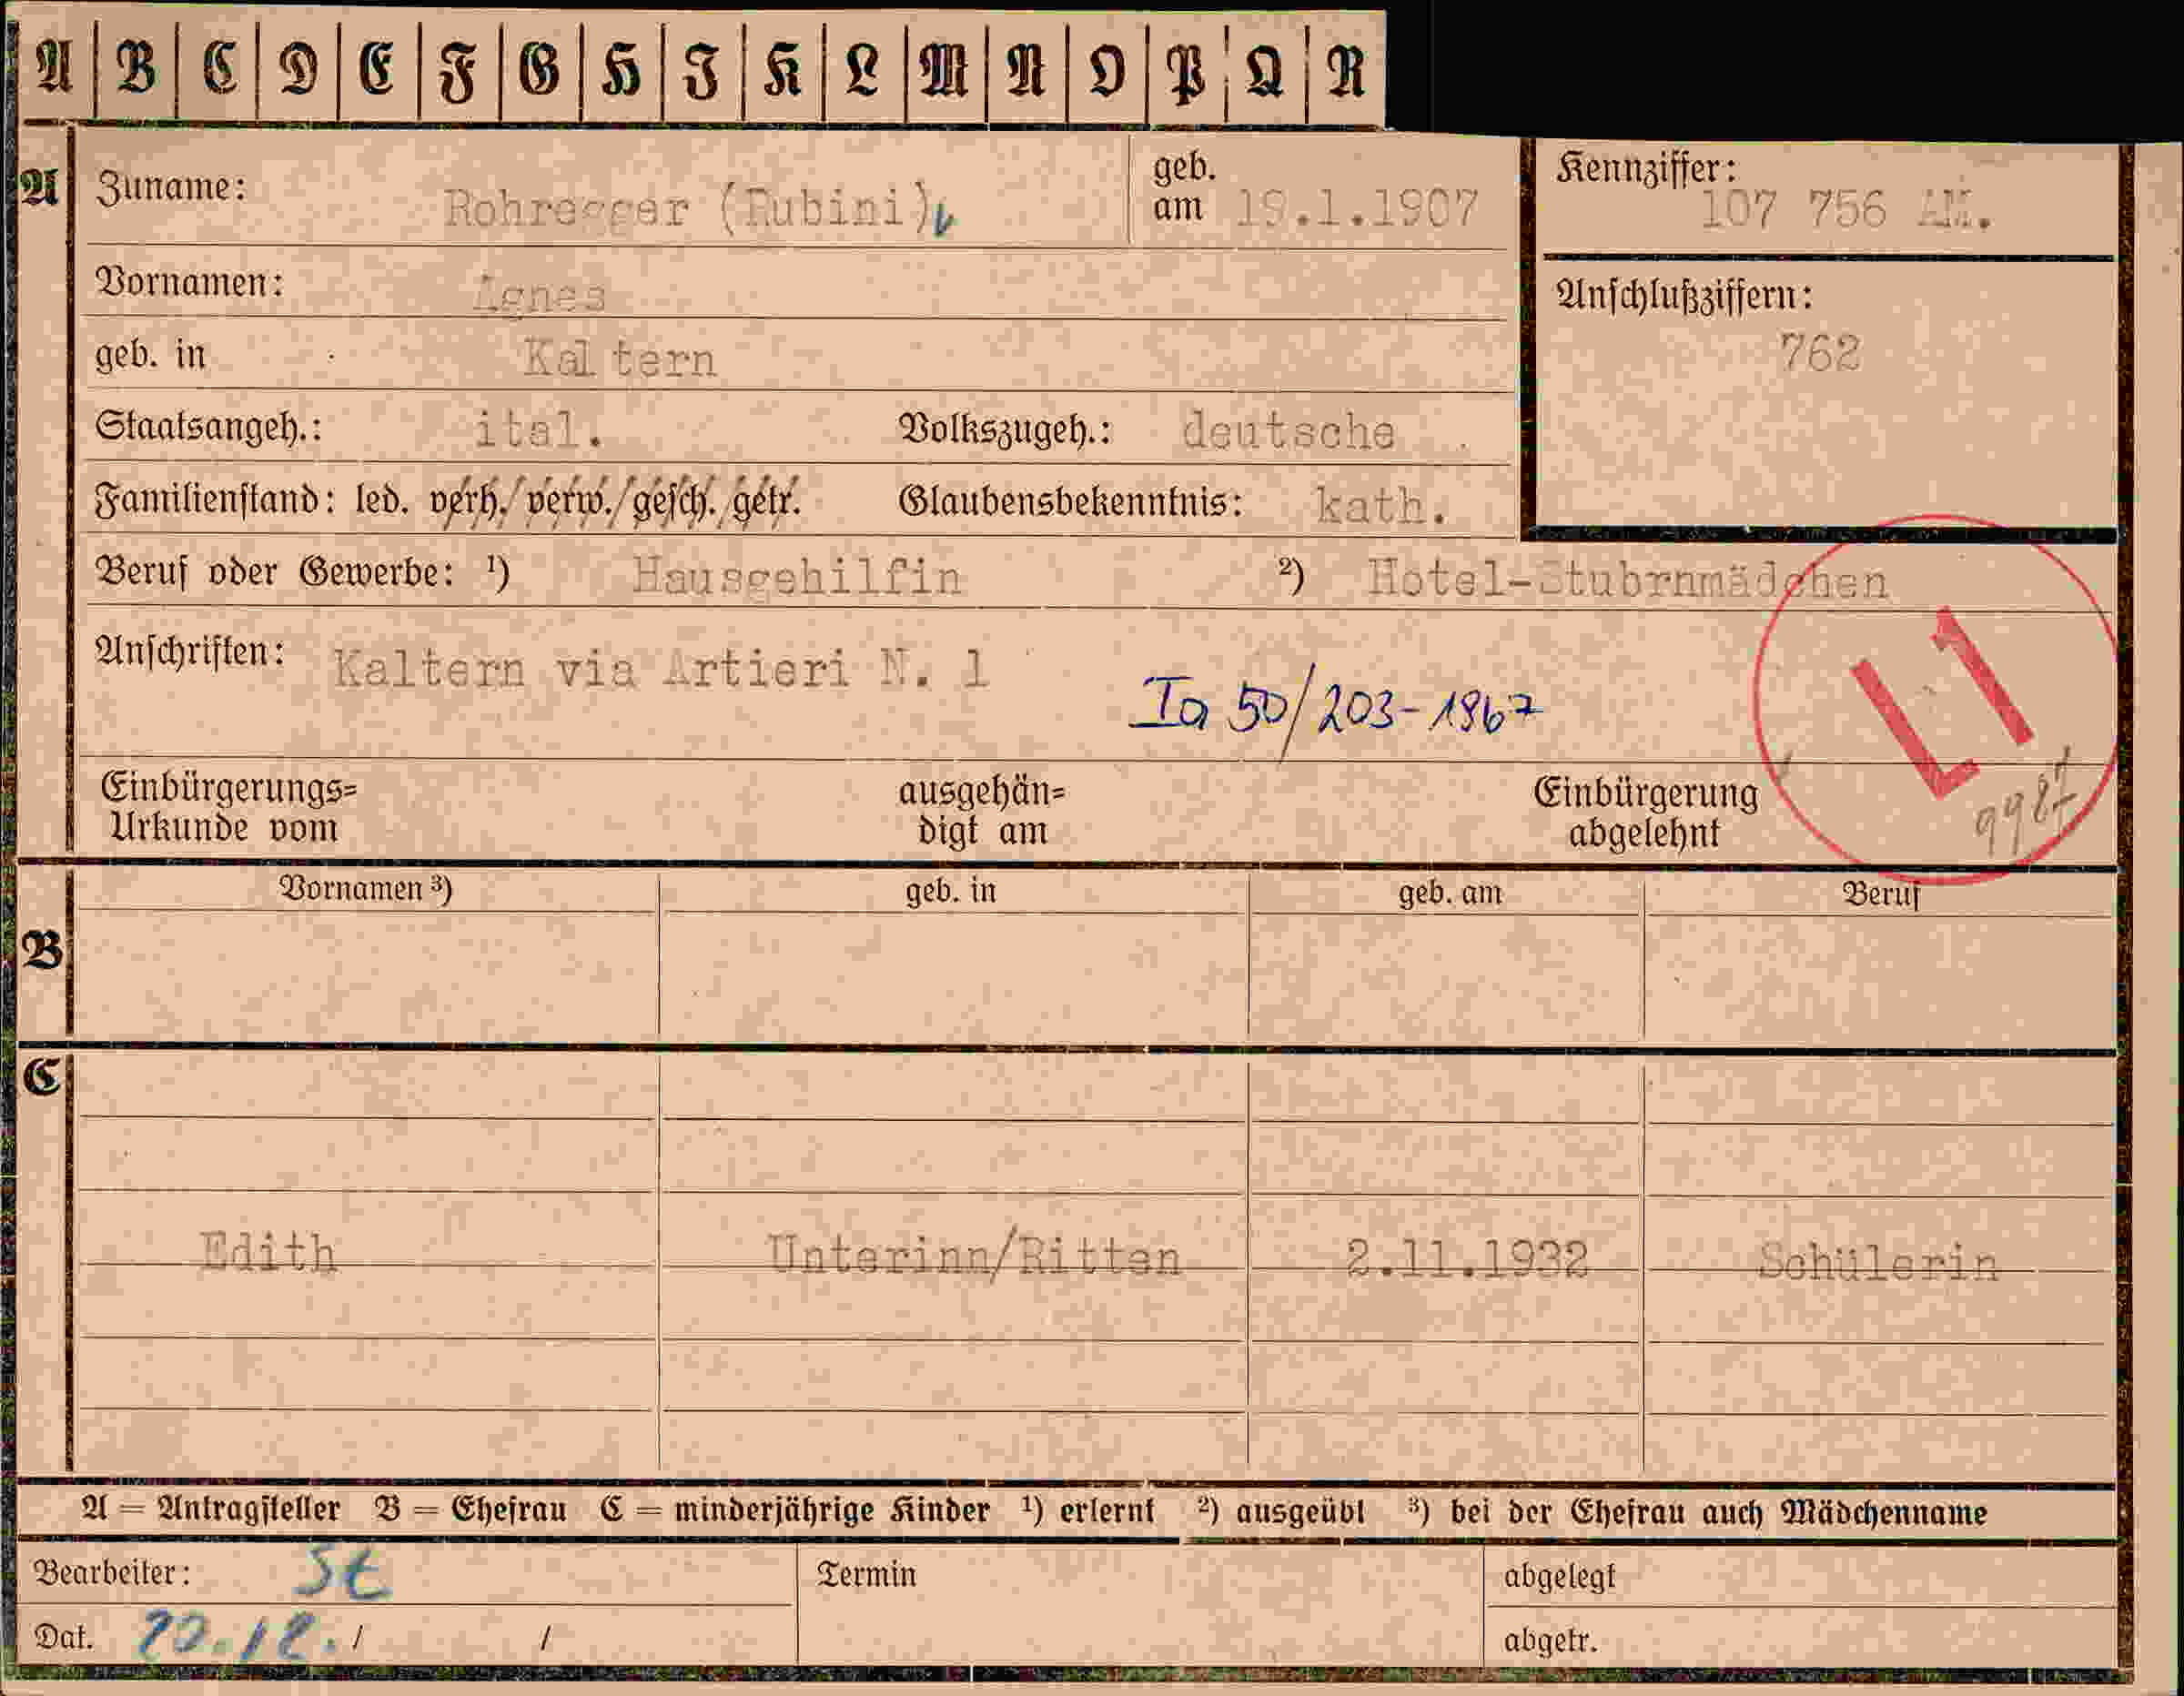 A B C D E F G H J K L M N O P Q R
A Zuname: Rohregger (Rubini) geb. am 19.1.1907 Kennziffer: 107 756 AM.
Vornamen: Agnes Anschlußziffern:
geb. in Kaltern 762
Staatsangeh.: ital. Volkszugeh.: deutsche
Familienstand: led. verh./verw./gesch. getr. Glaubensbekenntnis: kath.
Beruf oder Gewerbe: ¹) Hausgehilfin ²) Hotel-Stubrnmädchen
Anschriften: Kaltern via Artieri N. 1
Ia 50/203-1967
L1
9987
Einbürgerungs= ausgehän= Einbürgerung
Urkunde vom digt am abgelehnt
Vornamen ³) geb. in geb. am Beruf
B
C
Edith Unterinn/Ritten 2.11.1932 Schülerin
A = Antragsteller B = Ehefrau C = minderjährige Kinder ¹) erlernt ²) ausgeübt ³) bei der Ehefrau auch Mädchenname
Bearbeiter: St Termin abgelegt
Dat. 20.12. / / abgetr.